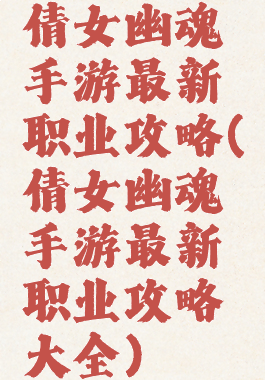 倩女幽魂
手游最新
职业攻略(
倩女幽魂
手游最新
职业攻略
大全)